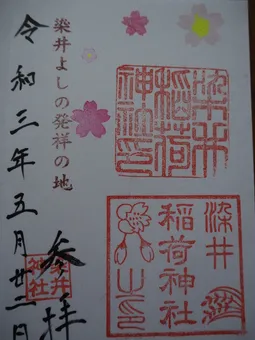 染井
稲荷
神社印
染井
稲荷神社
之印
染井よしの発祥の地
参拝
令和三年五月廿二日